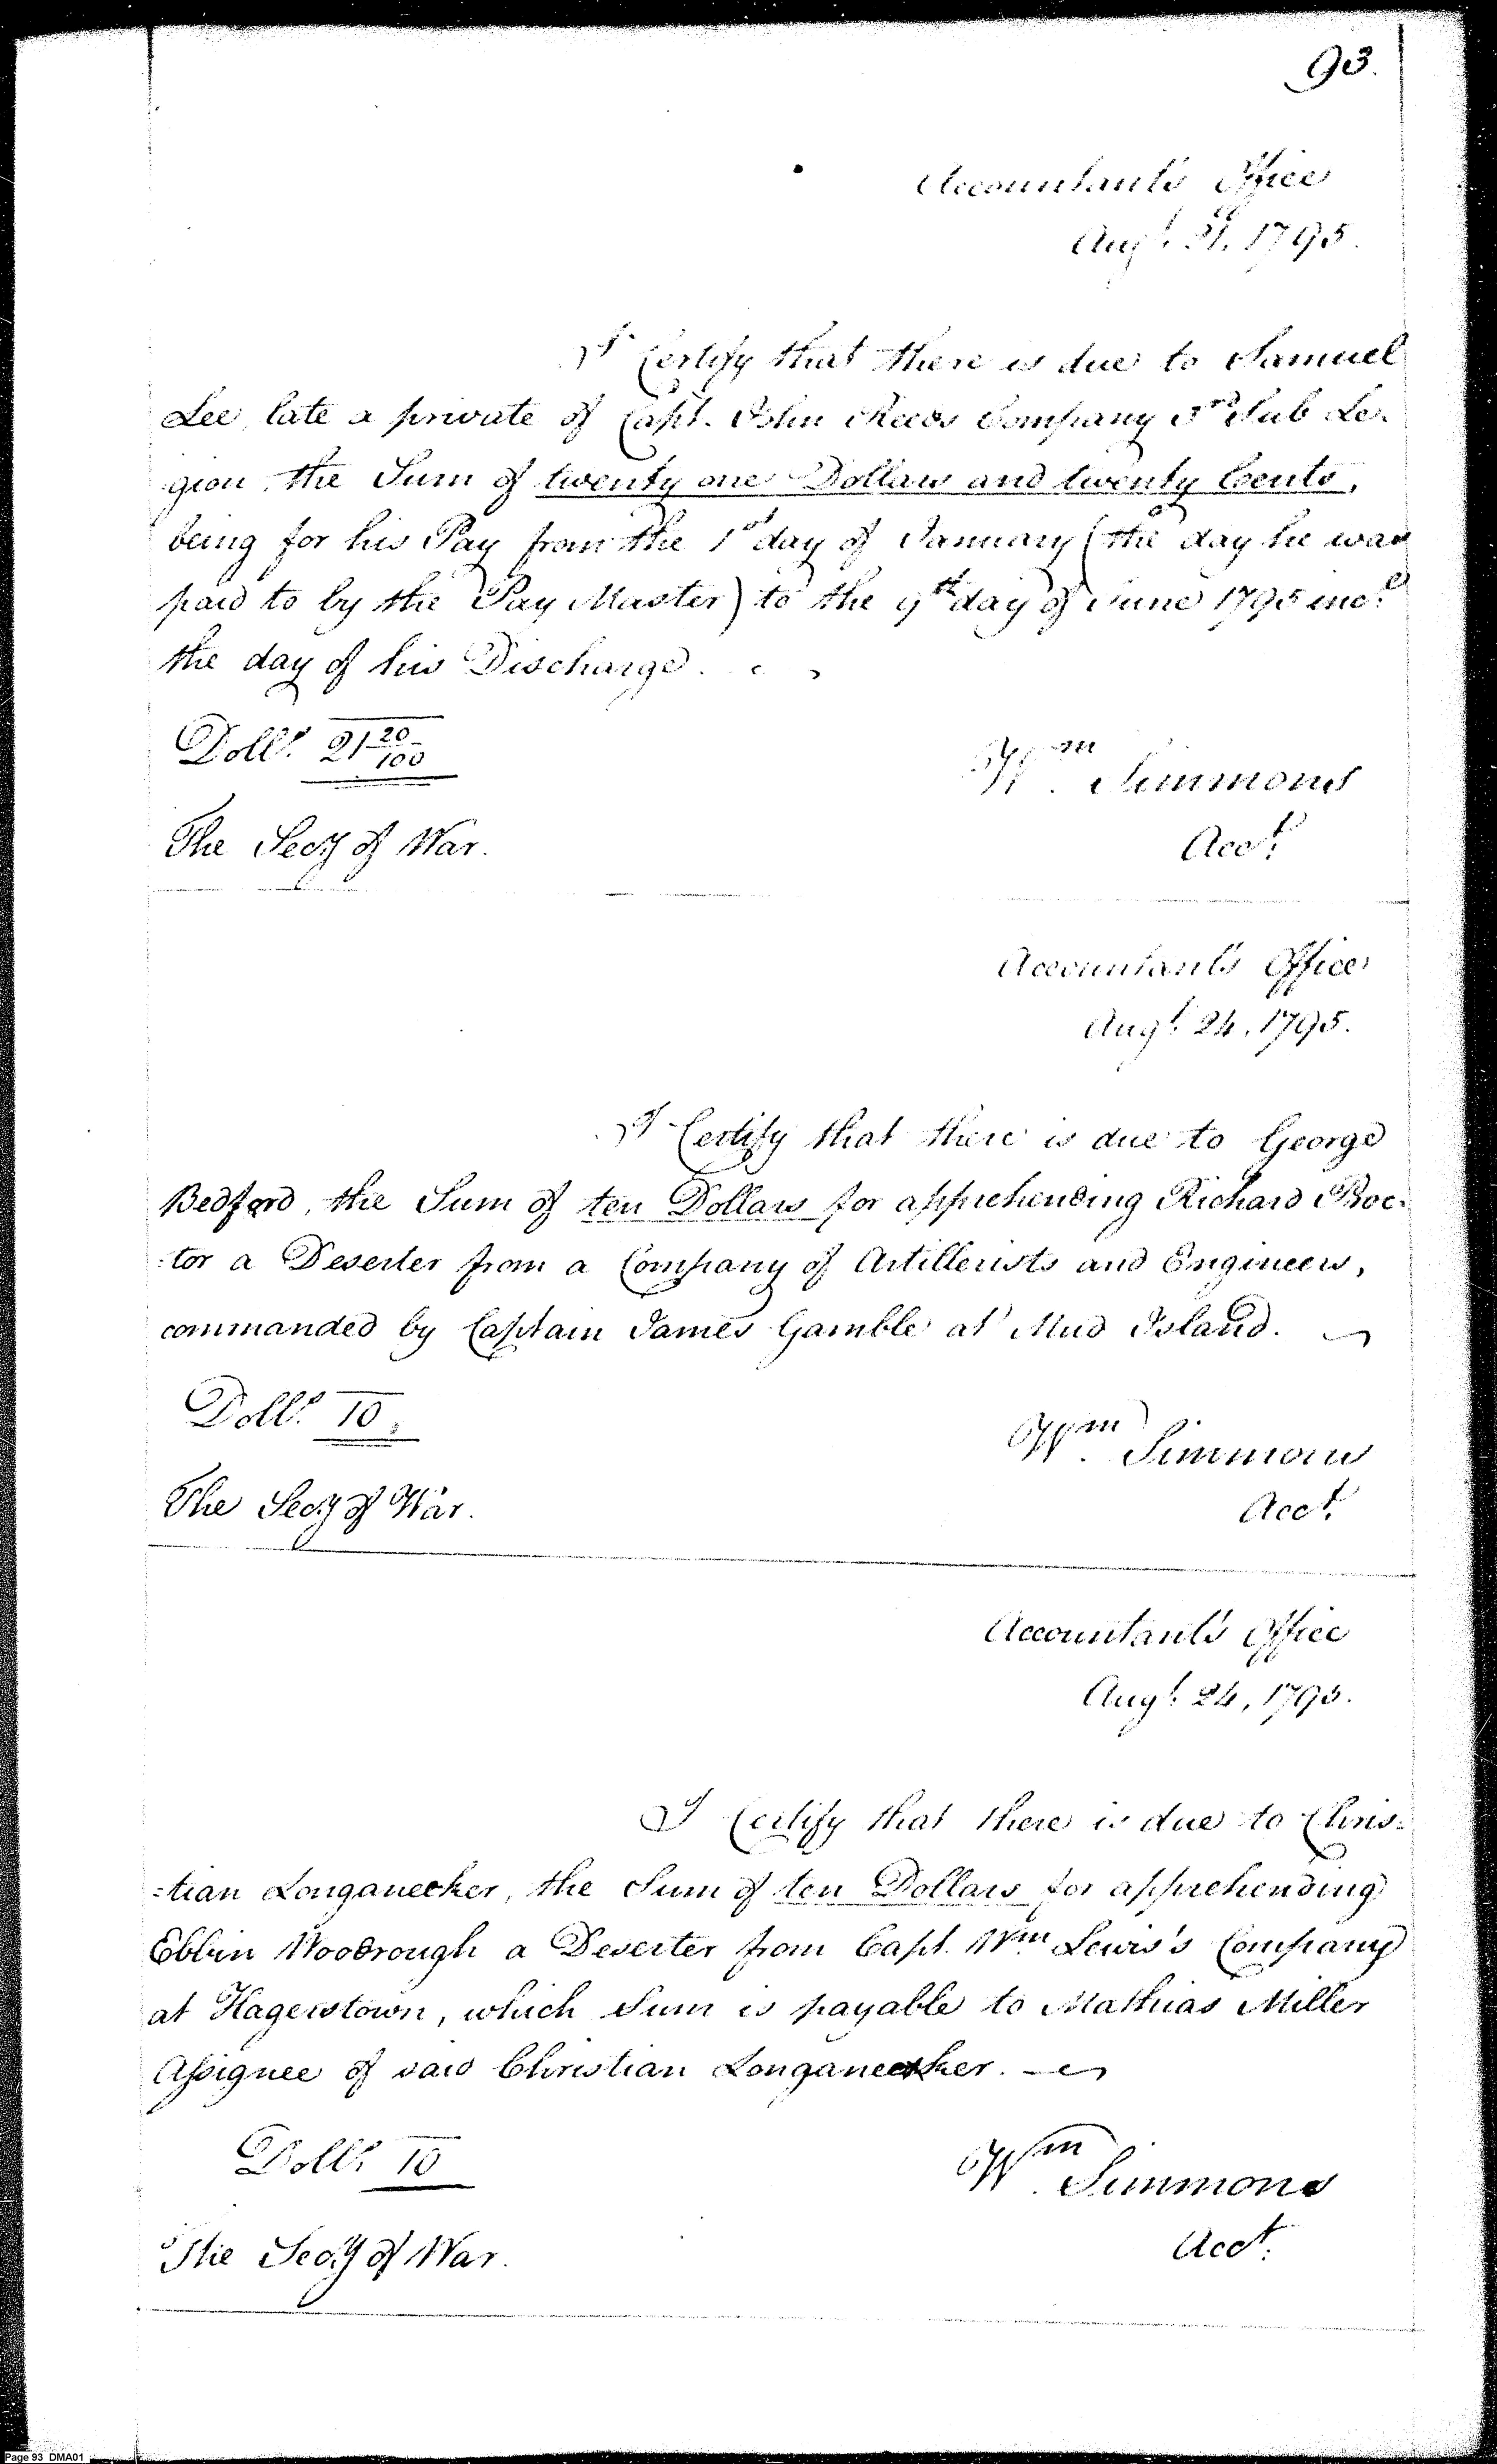 93.
Accountant's Office
Augt. 21. 1795.
I Certify that there is due to Samuel
Lee, late a private of Capt. John Company 3rd Sub Le-
gion, the Sum of twenty one Dollars and twenty Cents,
being for his Pay from the 1st day of January (the day he was
paid to by the Pay Master) to the 9th day of June 1795 incl.
the day of his Discharge.
Dolls. 21 20/100
Wm. Simmons
The Secy of War.
Acct.
Accountant's Office
Augt. 24. 1795.
I Certify that there is due to George
Bedford, the Sum of ten Dollars for apprehending Richard Proc-
-tor a Deserter from a Company of Artillerists and Engineers,
commanded by Captain James Gamble at Mud Island.
Dolls. 10.
Wm. Simmons
The Secy of War.
Acct.
Accountant's Office
Augt. 24, 1795.
I Certify that there is due to Chris=
=tian Longanecker, the Sum of ten Dollars for apprehending
Ebbin Woodrough a Deserter from Capt. Wm. Lewis's Company
at Hagerstown, which Sum is payable to Mathias Miller
Assignee of said Christian Longanecker.
Dolls. 10
Wm. Simmons
The Secy of War.
Acct.
Page 93 DMA01